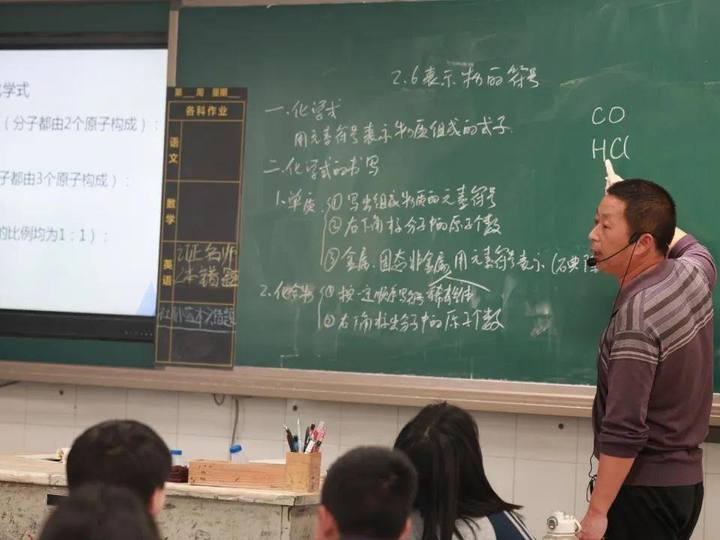 学式
（分子都由2个原子构成）：
子都由3个原子构成）：
的比例均为1：1）：
第 周 星期
各科作业
语文
数学
英语
2.6表示物质的符号
一、化学式
用元素符号表示物质组成的式子
二、化学式的书写
1.单质 ① 写出组成物质的元素符号
② 右下角标分子中的原子个数
③ 金属、固态非金属用元素符号表示（碘除
2.化合物 ① 按一定顺序
② 右下角标出分子中的原子个数
CO
HCl